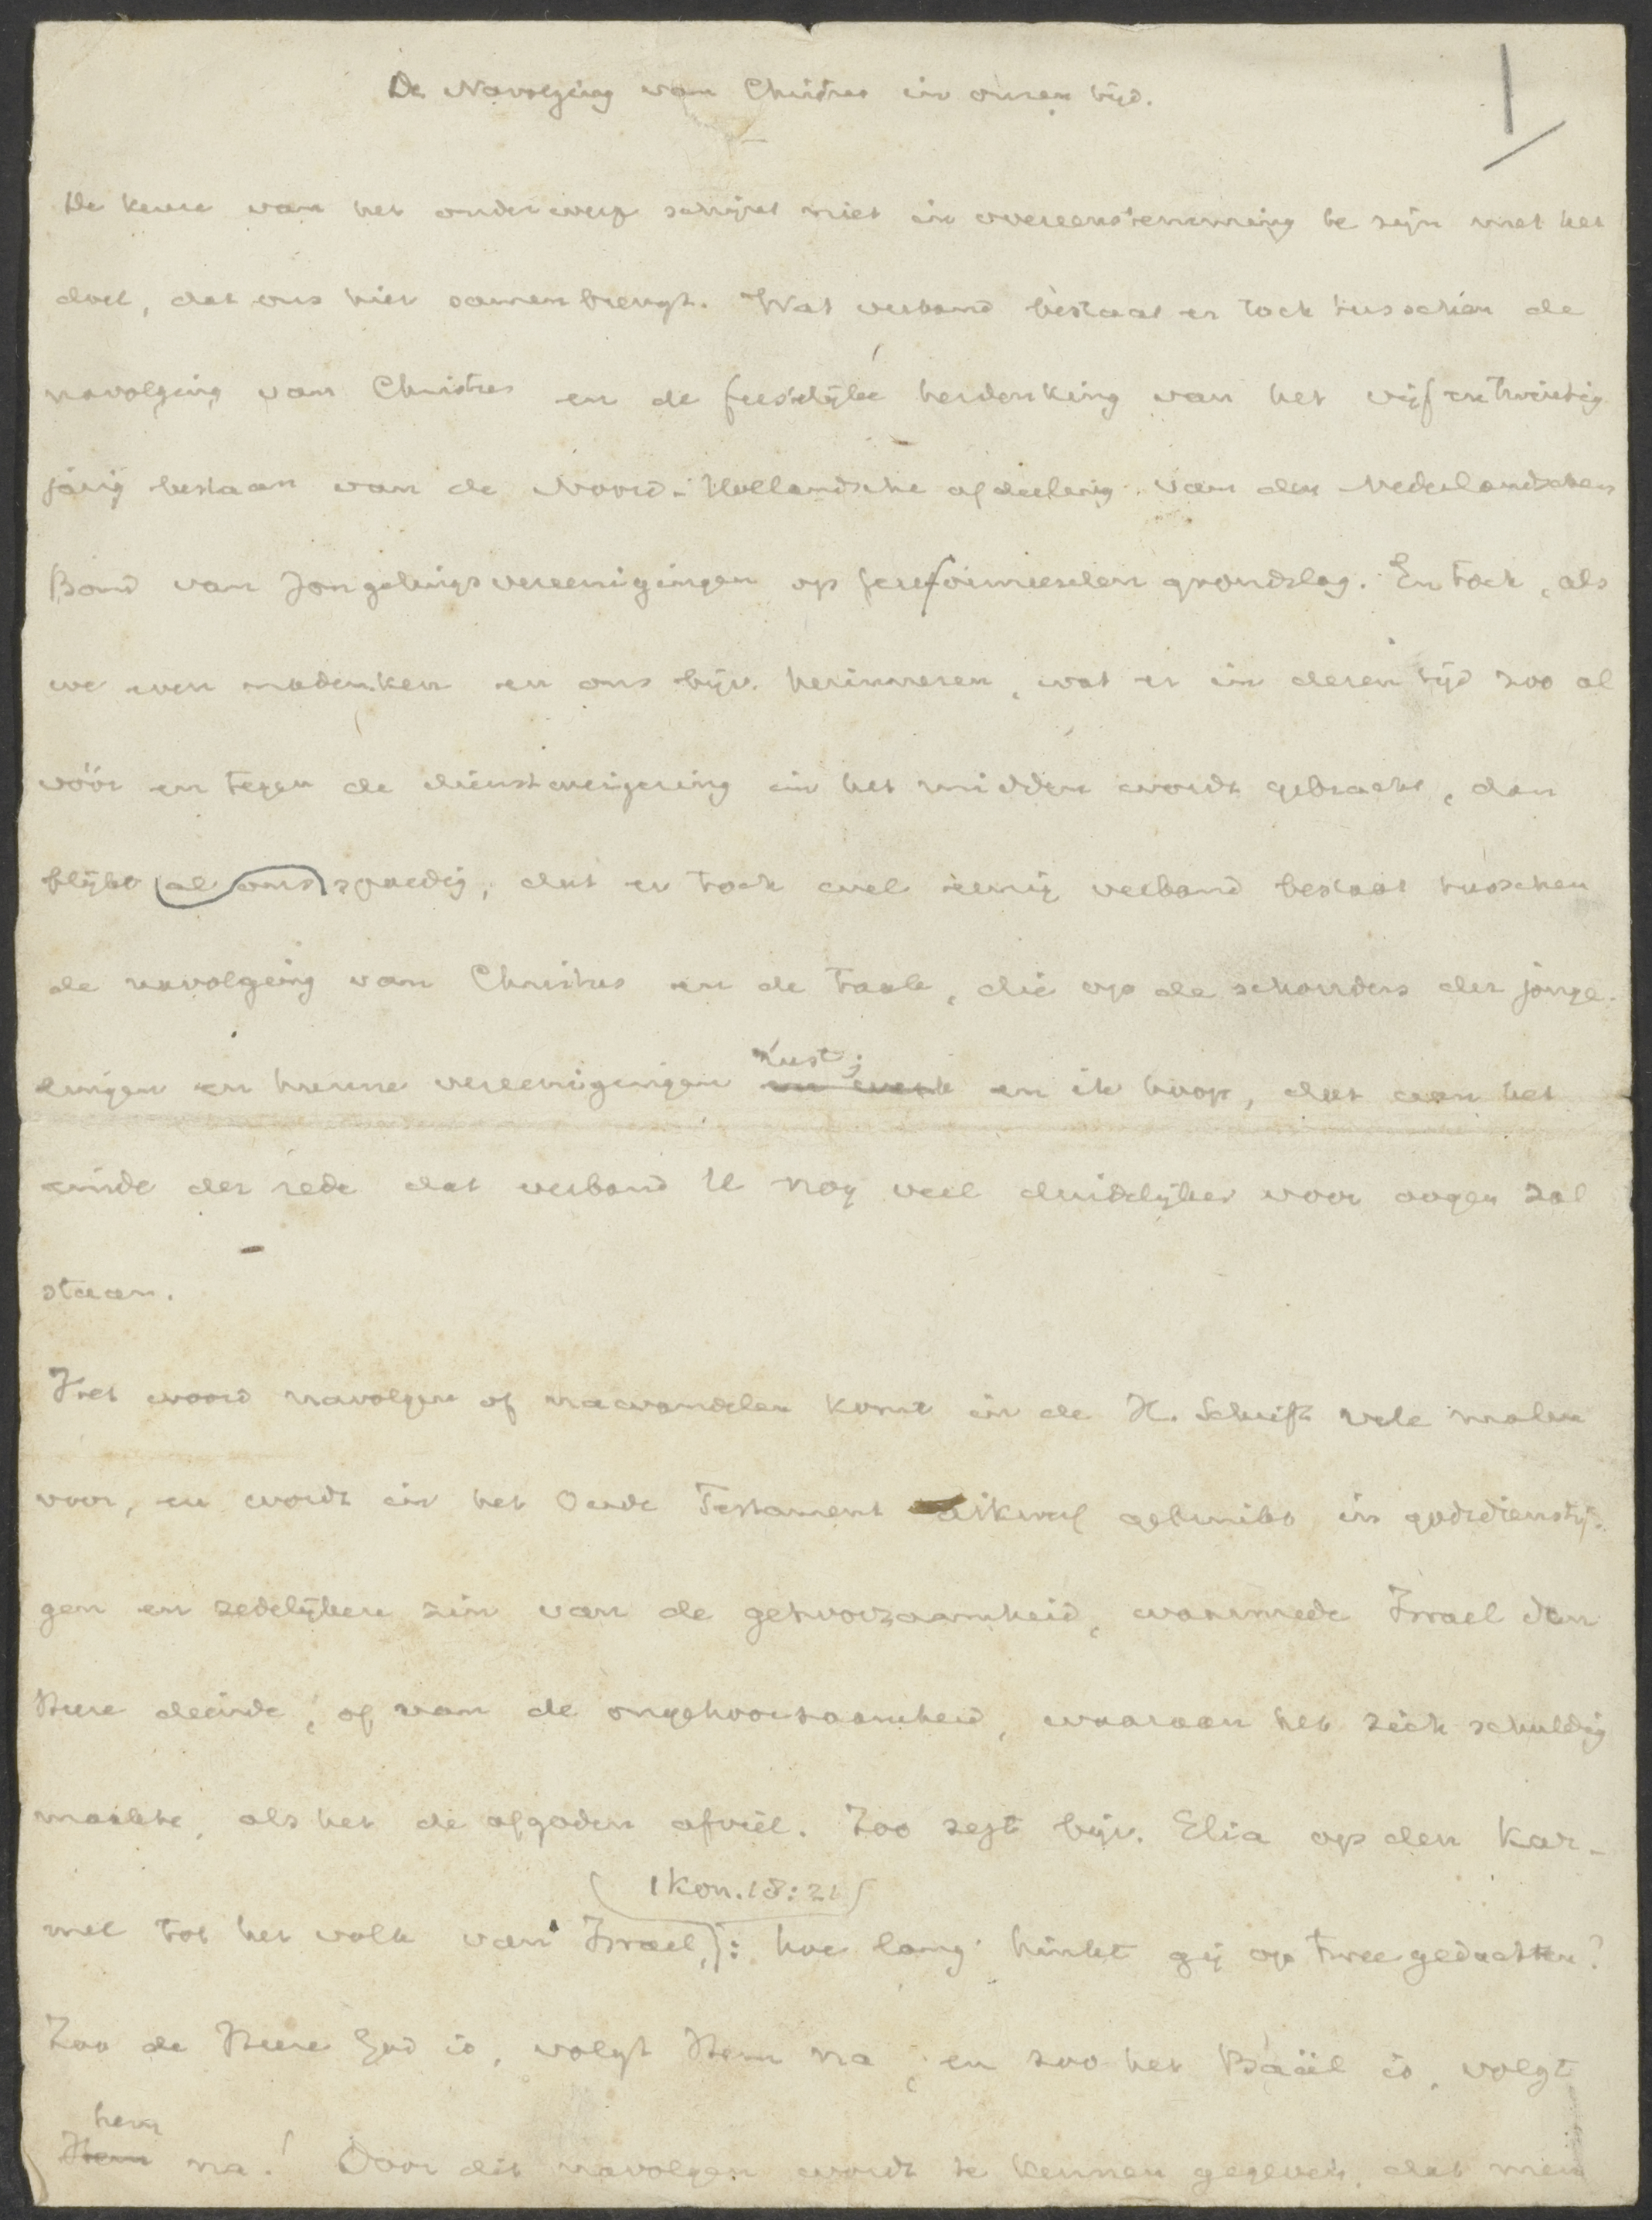 De Navolging van Christus in onzen tijd.
1
De keuze van het onderwerp schijnt niet in overeenstemming te zijn met het
doel, dat ons hier samenbrengt. Wat verband bestaat er toch tusschen de
navolging van Christus en de feestelijke herdenking van het vijfentwintig
jarig bestaan van de Noord-Hollandsche afdeeling van den Nederlandschen
Bond van Jongelingsvereenigingen op gereformeerden grondslag. En toch, als
we even nadenken en ons bijv. herinneren, wat er in dezen tijd zoo al
vóór en tegen de dienstweigering in het midden wordt gebracht, dan
blijkt al ons spoedig, dat er toch wel eenig verband bestaat tusschen
de navolging van Christus en de taak, die op de schouders der jonge-
lingen en hunne vereenigingen rust; en ik hoop, dat aan het
einde der rede dat verband U nog veel duidelijker voor oogen zal
staan.
Het woord navolgen of nawandelen komt in de H. Schrift vele malen
voor, en wordt in het Oude Testament dikwerf gebruikt in godsdiensti-
gen en zedelijken zin van de gehoorzaamheid, waarmede Israel den
Heere diende, of van de ongehoorzaamheid, waaraan het zich schuldig
maakte, als het de afgoden afviel. Zoo zegt bijv. Elia op den Kar-
(1 Kon. 18:21)
mel tot het volk van Israel,: hoe lang hinkt gij op twee gedachten?
Zoo de Heere God is, volgt Hem na, en zoo het Baäl is, volgt
hem
Hem na! Door dit navolgen wordt te kennen gegeven, dat men